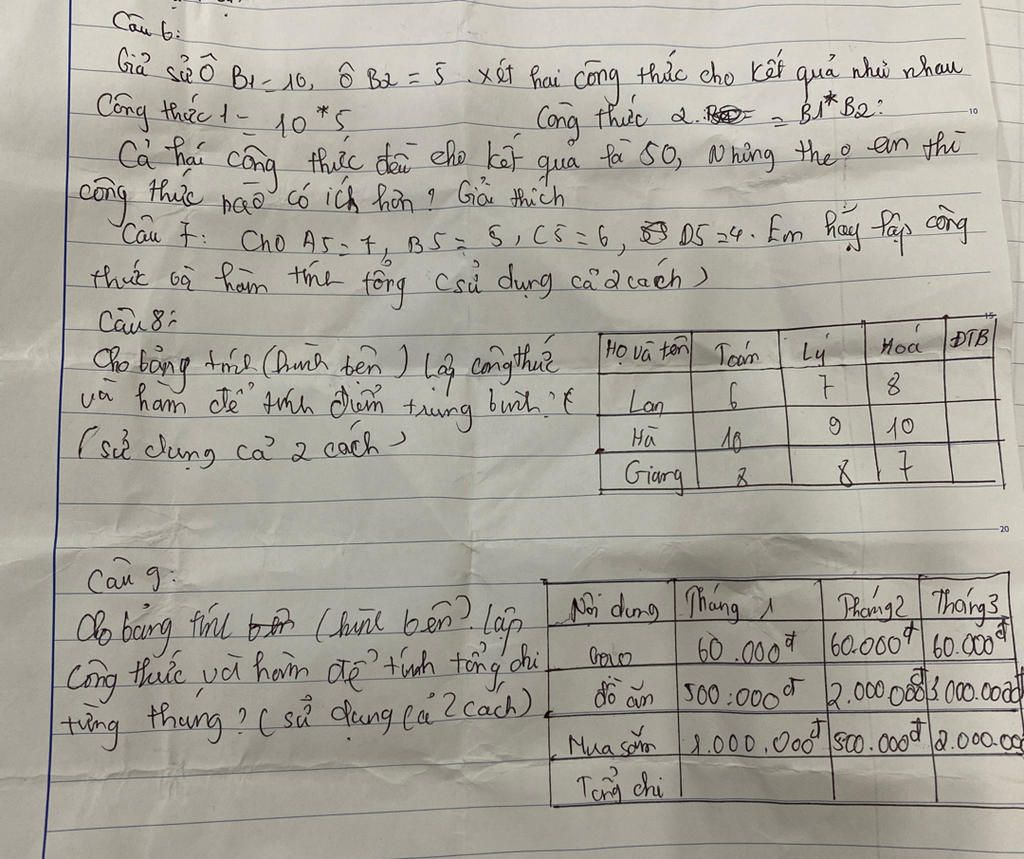 Câu 6:
Giả sử Ô B1 = 10, ô B2 = 5. Xét hai công thức cho kết quả như nhau
Công thức 1 = 10 * 5 Công thức 2 = B1 * B2:
Cả hai công thức đều cho kết quả là 50, Nhưng theo em thì
công thức nào có ích hơn? Giải thích
Câu 7: Cho A5 = 7, B5 = 5, C5 = 6, D5 = 4. Em hãy lập công
thức và hàm tính tổng (sử dụng cả 2 cách)
15
Câu 8:
Cho bảng tính (hình bên) Lập công thức
và hàm để tính điểm trung bình?
(sử dụng cả 2 cách)
Họ và tên Toán Lý Hoá ĐTB
Lan 6 7 8
Hà 10 9 10
Giang 8 8 7
20
Câu 9:
Cho bảng tính (hình bên). Lập
công thức và hàm để tính tổng chi
từng tháng? (sử dụng cả 2 cách)
Nội dung Tháng 1 Tháng 2 Tháng 3
Gạo 60.000đ 60.000đ 60.000đ
đồ ăn 500.000đ 2.000.000đ 000.000đ
Mua sắm 1.000.000đ 500.000đ 2.000.00
Tổng chi